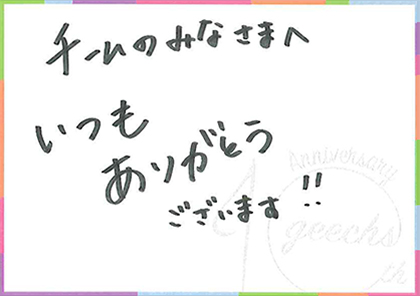 チームのみなさまへ
いつも
ありがとう
ございます!!
Anniversary
10
geechs
th